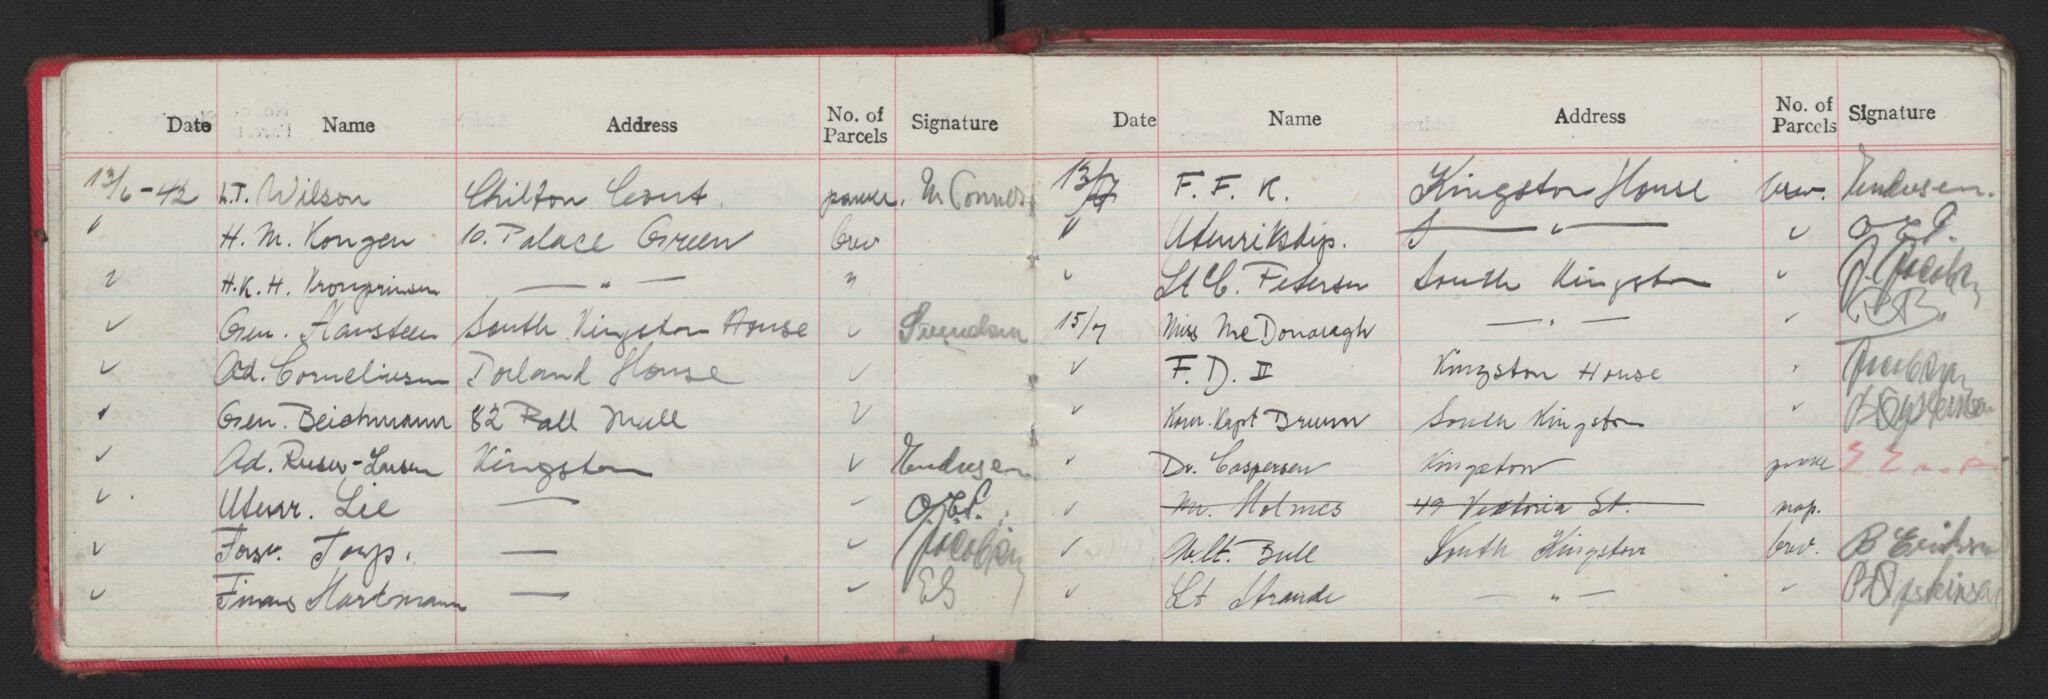 Date Name Address No. of Parcels Signature
13/6-42 Lt. Wilson Chilton Court.
" H. M. Kongen 10. Palace Green brev
" H.K.H. Kronprinsen — " — "
" Gen. Hansteen South Kingston House " Svendsen
" Ad. Corneliusen Dorland House "
" Gen. Beichmann 82 Pall Mall "
" Ad. Riiser-Larsen Kingston " Endresen
" Utenr. Lie — " O.E.P.
" Forsv. Torp. — " Jacobsen
" Finans Hartmann — " EG
Date Name Address No. of Parcels Signature
13/7 F. F. K. Kingston House brev. Endresen.
" Utenriksdep. — " — " O.E.P.
" Lt C. Petersen South Kingston " Jacobsen
15/7 Miss McDonaragh — " — "
" F. D. II Kingston House " Jacobsen
" Kapt Bruun South Kingston "
" Dr. Caspersen Kingston
" Mr. Holmes 49 Victoria St. map.
" Bull South Kingston brev. B Eriksen
" Lt Strande — " — "